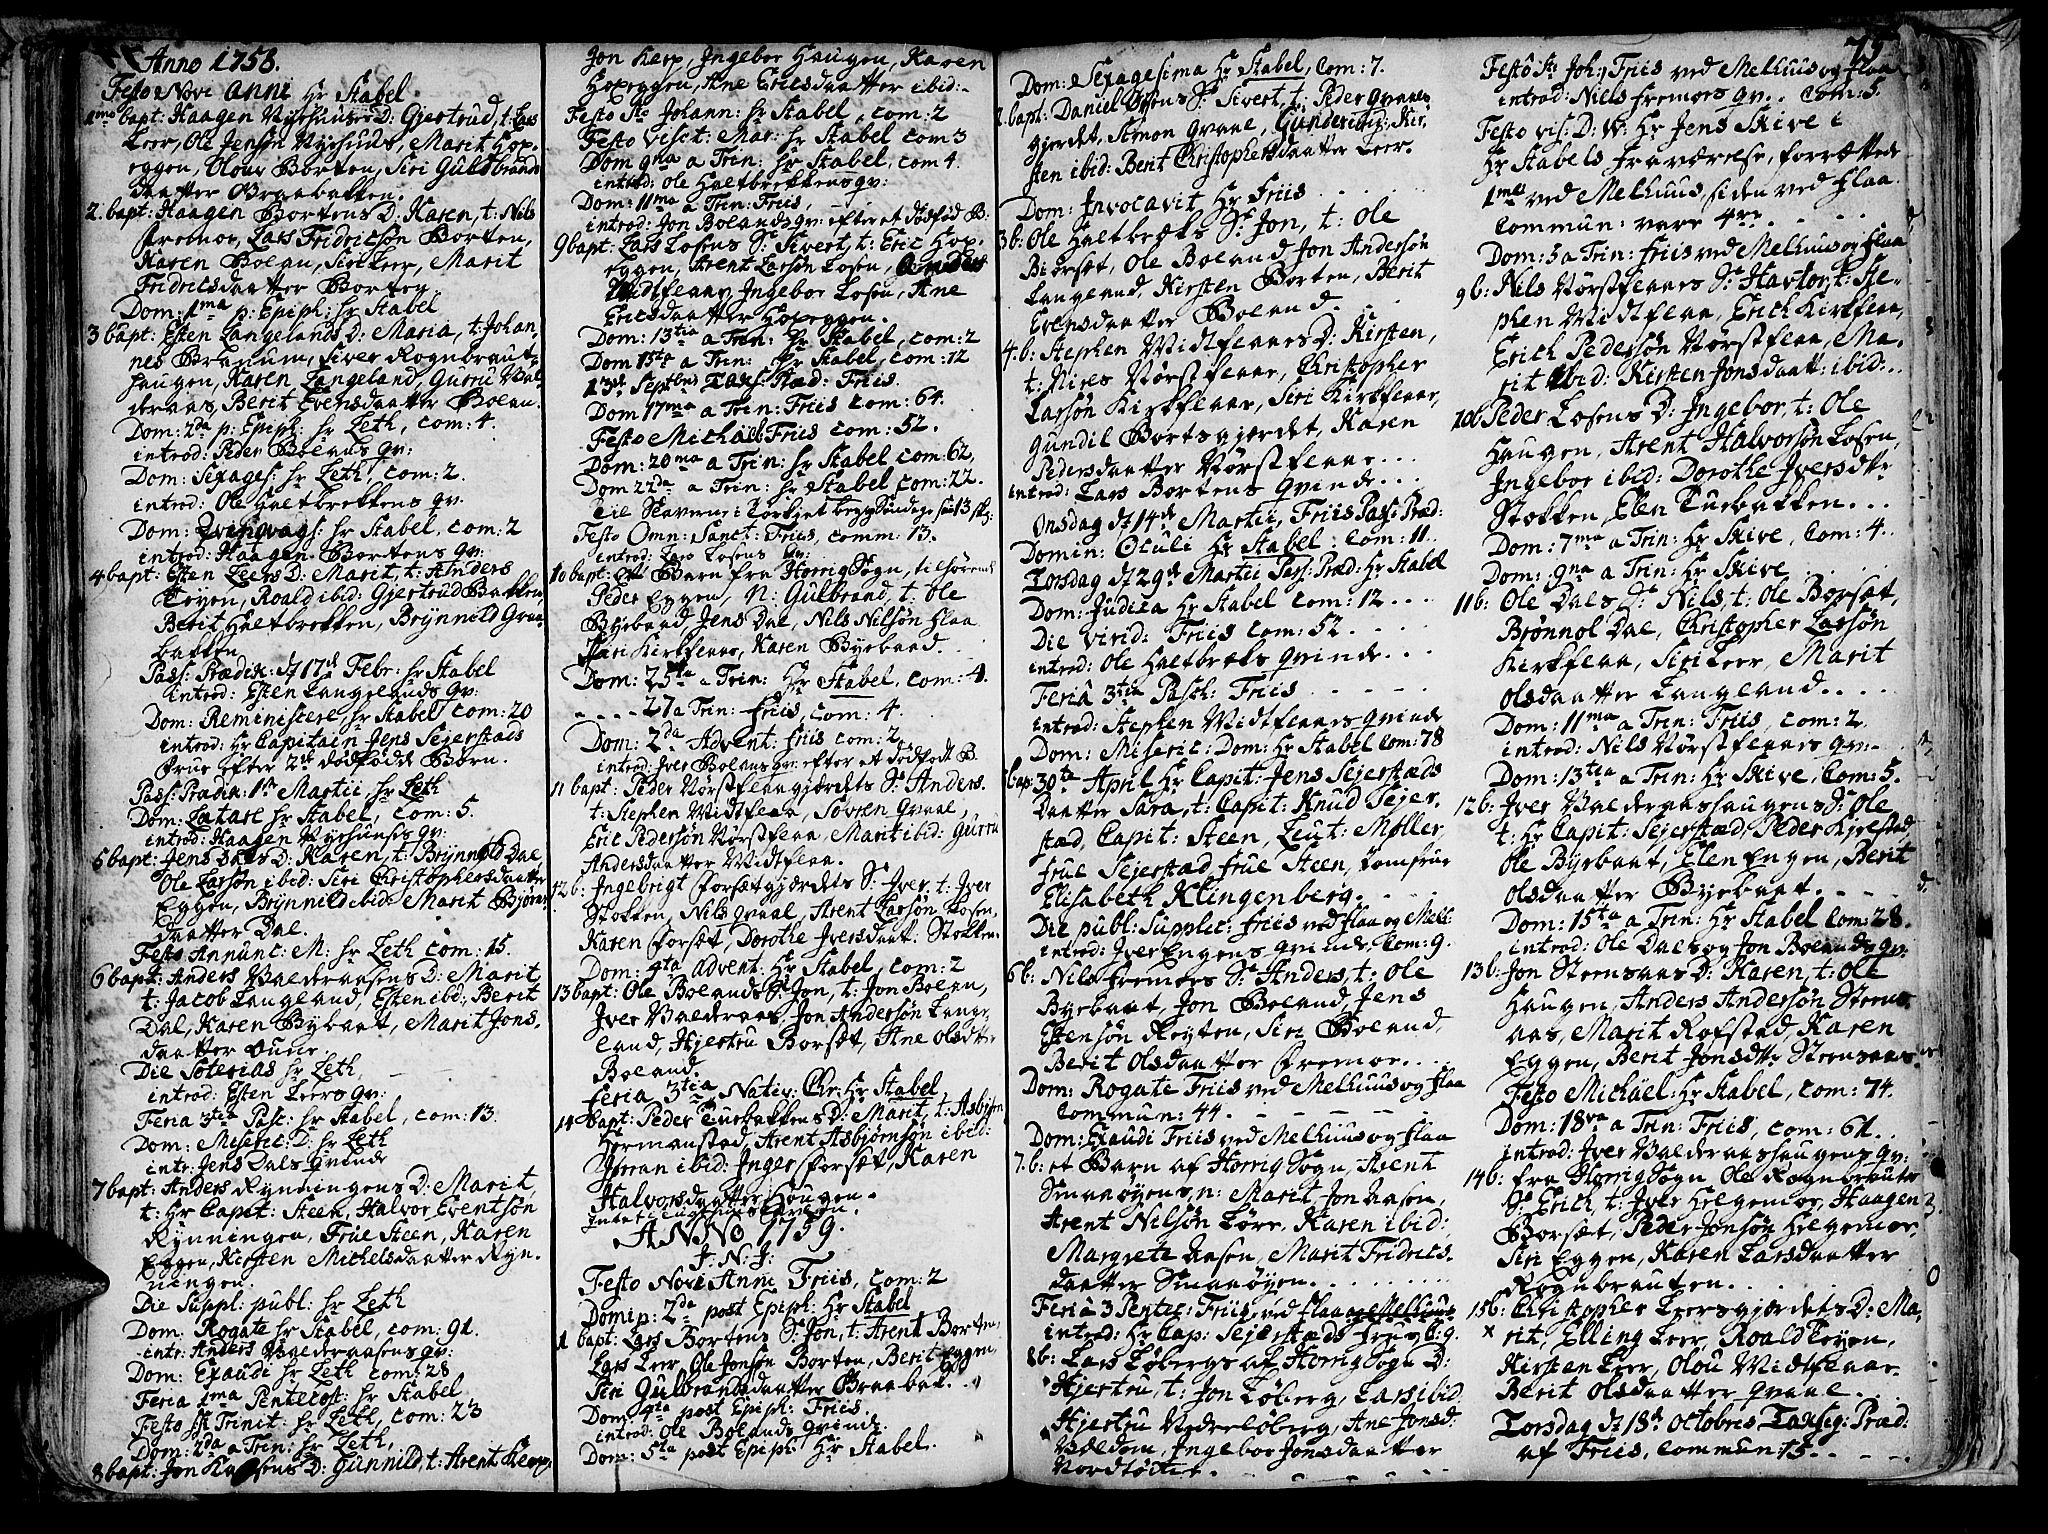 Anno 1758.
Festo Novi Anni Hr Stabel.
1mo bapt: Haagen Nyehuuses D: Gjertrud, t: Lars
Leer, Ole Jensøn Nyehuus, Marit Hop-
eggen, Olou Borten, Siri Guldbrands
daatter Braabakken.
2. bapt: Haagen Bortens D: Karen, t: Nils
Fremoe, Lars Fridricsøn Borten,
Karen Boelan, Siri Leer, Marit
Fridricsdaatter Borten.
Dom: 1ma p: Epiph: hr Stabel
3 bapt: Esten Langelands D: Maria, t: Johan,
nes Braanum, Siver Rognbraut-
haugen, Karen Langeland, Gurru Val-
deraas, Berit Evensdaatter Boelan.
Dom: 2da p: Epiph: hr Leth, com: 4.
introd: Peder Boelans qv:
Dom: Sexages: hr Leth, com: 2.
introd: Ole Haltbrekkens qv:
Dom: Qvinqvag: hr Stabel, com: 2
introd: Haagen Bortens qv:
4 bapt: Esten Leers D: Marit, t: Anders
Løyen, Roald ibid: Gjertrud Bakken,
Berit Haltbrekken, Brynnild Graa-
bakken.
Pass: Prædik: d 17d Febr: hr Stabel
introd: Esten Langelands qv:
Dom: Reminiscere, hr Stabel com: 20
introd: Hr Capitain Jens Sejerstads
Frue efter 2de dødfødde Børn.
Pass: Prædik: 1st Martii, hr Leth
Dom: Lætare hr Stabel, com: 5.
introd: Haagen Nyehuuses qv:
5 bapt: Jens Dals D: Karen, t: Brynnild Dal,
Ole Larsøn ibid: Siri Christophersdaatter
Eggen, Brynnild ibid: Marit Bjørns-
daatter Dal.
Festo Annunc: M: hr Leth com: 15.
6 bapt: Anders Valderaasens D: Marit,
t: Jacob Langeland, Esten ibd, Berit
Dal, Karen Bybaat, Marit Jons,
daatter
Die Soterias hr Leth
introd: Esten Leers qv:
Feria 3tia Pasc: hr Stabel, com: 13.
Dom: Miseric: D: hr Leth
intr: Jens Dals qvinde
7 bapt: Anders Rynningens D: Marit,
t: Hr Capit: Steen, Halvor Eventsøn
Rynningen, Frue Steen, Karen
Eggen, Kirsten Michelsdaatter Ryn-
ningen.
Die Suppl: publ: hr Leth
Dom: Rogate hr Stabel, com: 91.
intr: Anders Valderaasens qv:
Dom: Exaudi hr Leth com: 28
Feria 1ma Pentecost: hr Stabel
Festo St Trinit: hr Leth, com: 23
Dom: 2da a Trin: hr Leth,
8 bapt: Jon D: Gunnild, t: Arent Kerp,
Jon Kerp, Ingebor Haugen, Karen
Hopeggen, Ane Ericsdaatter ibid:
Festo Sti Johann: hr Stabel, com: 2
Festo Visit: Mar: hr Stabel com 3
Dom 9na a Trin: hr Stabel, com 4.
introd: Ole Haltbrekkens qv:
Dom: 11ma a Trin: Friis,
introd: Jon Boelands qv: efter et dødfød B.
9 bapt: Lars Losens S: Sivert, t: Eric Hop-
eggen, Arent Larsøn Losen, Anders
Midtflaae, Ingebor Losen, Ane
Ericsdaatter Hopeggen.
Dom: 13tia a Trin: hr Stabel, com: 2
Dom 15ta a Trin: hr Stabel, com: 12
13d Septbris Taxs: Præd: Friis.
Dom 17ma a Trin: Friis com: 64.
Festo Michaël Friis com: 52.
Dom: 20ma a Trin: hr Stabel com: 62,
Dom 22da a Trin: hr Stabel com: 22.
Til Slaverne i Tyrkiet begge Sundage
Festo Omn: Sanct: Friis, comm: 13.
introd: Lars Losens qv:
10 bapt: Et Barn fra Horrig Sogn, tilhørende
Peder Eggen, N: Gulbrand, t: Ole
Byebaad, Jens Dal, Nils Nilsøn Flaa
Siri Kirkflaae, Karen Byebaad.
Dom: 25ta a Trin: Hr Stabel, com: 4.
- - - - 27 a Trin: Friis, com: 4.
Dom: 2da Advent: Friis com: 2
introd: Iver Boelans qv: efter et dødfødt B.
11 bapt: Peder Nørstflaagjærdets S: Anders.
t: Stephen Midtflaa, Søvren Qvaal,
Eric Pedersøn Nørstflaa, Marit ibid: Gurru
Andersdaatter Midtflaa.
12 b: Ingebrigt Forsætgjærdets S: Iver, t: Iver
Stokken, Nils Qvaal, Arent Larsøn Losen,
Karen Forsæt, Dorothe Iversdaat: Stokken
Dom: 4ta Advent: Hr Stabel, com: 2
13 bapt: Ole Boelands S: Jon, t: Jon Boelan,
Iver Valderaas, Jon Andersøn Lange-
land, Hjertru Borsæt, Ane Olsdtter
Boeland.
Feria 3tia Nativ: Chr: Hr Stabel
14 bapt: Peder Tuebakkens D: Marit, t: Asbjørn
Hermanstad, Arent Asbjørnsøn ibid:
Jøran ibid: Inger Forsæt, Karen
Halvorsdaatter Haugen.
ANNO 1759.
J. N. J:
Festo Novi Anni Friis, com: 2
Domin: 2da post Epiph: Hr Stabel
1 bapt: Lars Bortens S: Jon, t: Arent Borten,
Lars Leer, Ole Jonsøn Borten, Berit Eggen,
Siri Gulbrandsdaatter Braabak.
Dom: 4ta post Epiph: Friis.
introd: Ole Bolands Qvinde.
Dom: 5ta post Epiph: Hr Stabel.
Dom: Sexagesima Hr Stabel, Com: 7.
2. bapt: Daniel S: Sivert, t: Peder Qvaals
gjerdet, Simon Qvaal, Gunder ibid: Kir,
sten ibid: Berit Christophersdaatter Leer.
Dom: Invocavit Hr Friis
3 b: Ole Haltbræks S: Jon, t: Ole
Biørset, Ole Boeland, Jon Andersøn
Langeland, Kirsten Borten, Berit
Evensdaatter Boeland.
4. b: Stephen Midtflaaes D: Kirsten,
t: Nires Nørstflaae, Christopher
Larsøn Kirkflaae, Siri Kirkflaae,
Gundil Bortsgjærdet, Karen
Pedersdaatter Nørstflaae...
introd: Lars Bortens Qvinde...
Onsdag d 14d Martii, Friis Pass: Præd:
Domin: Oculi Hr Stabel. Com: 11.
Torsdag d 29d Martii Pass: Præd: Hr Stabel
Dom: Judica Hr Stabel Com: 12...
Die Virid: Friis Com: 52.
introd: Ole Haltbreks Qvinde...
Feria 3tia Pasch: Friis
introd: Stephen Midtflaaes Qvinde
Dom: Miseric: Dom: Hr Stabel Com: 78
5 bap: 30te April Hr Capit: Jens Sejerstæds
Daatter Sara, t: Capit: Knud Sejer-
stæd, Capit: Steen, Leut: Møller,
Frue Sejerstad, Frue Steen, Jomfrue
Elisabeth Klingenberg.
Die publ: Supplic: Friis ved Flaa og Melh:
introd: Iver Engens Qvinde, Com: 9.
6 b: Nils Fremoes S: Anders, t: Ole
Byebaat, Jon Boeland, Jens
Estensøn Røyten, Siri Boeland,
Berit Olsdaatter Fremoe...
Dom: Rogate Friis ved Melhuus og Flaa
Commun: 44.
Dom: Exaudi Friis ved Melhuus og Flaa
7. b: et Barn af Horrig Sogn, Arent
Smaaøyens, n: Marit, Jon Aasen,
Arent Nilsøn Lørr, Karen ibid:
Margrete Aasen, Marit Fridrics-
daatter Smaaøyen.
Feria 3 Pentec: Friis, ved Flaa og Melhuus
introd: Hr Cap: Sejerstæds Frue C: 9.
8 b: Lars Løbergs af Horrig Sogn D:
Hjertru, t: Jon Løberg, Lars ibid
Hjertru Nedreløberg, Ane Jonsd:
Vældom, Ingebor Jonsdaatter
Nordtømme.
79
Festo St Joh: Friis ved Melhuus og Flaa
introd: Niels Fremoes qv. Com: 5.
Festo Vis: D: W: Hr Jens Skive i
Hr Stabels fraværelse, forrættede
1mo ved Melhuus, siden ved Flaa.
Commun: vare 4re.
Dom: 3 a Trin: Friis ved Melhuus og Flaa
9 b: Nils Nørstflaaes S: Havtor, t: Ste-
phen Midtflaa, Erich Kirkflaa,
Erich Pedersøn Nørstflaa, Ma-
rit ibid: Kirsten Jonsdaatt: ibid:
10 b: Peder Losens D: Ingebor, t: Ole
Haugen, Arent Halvorsøn Losen,
Ingebor ibid: Dorothe Iversdtr
Stokken, Elen Tuebakken...
Dom: 7ma a Trin: Hr Skive, Com: 4.
Dom: 9na a Trin: Hr Skive
11 b: Ole Dals S: Nils, t: Ole Borsæt,
Brønnol Dal, Christopher Larsøn
Kirkflaa, Siri Leer, Marit
Olsdaatter Langeland...
Dom: 11ma a Trin: Friis, com: 2
introd: Nils Nørstflaaes qv:
Dom: 13tia a Trin: Hr Skive, Com: 5.
12 b: Iver Valderaashaugens S: Ole
t: Hr Capit: Sejerstæd, Peder Kjelstad,
Ole Byebaat, Elen Engen, Berit
Olsdaatter Byebaat.
Dom: 15ta a Trin: Hr Stabel Com: 28.
introd: Ole Dals og Jon Boelands qv:
13 b: Jon Steensaas D: Karen, t: Ole
Haugen, Anders Andersøn Steens-
aas, Marit Rofstad, Karen
Eggen, Berit Jonsdtr Steensaas
Festo Michael: Hr Stabel, com: 74.
Dom: 18va a Trin: Friis, com: 61.
introd: Iver Valderaashaugens qv:
14 b: fra Horrig Sogn Ole Rognbrauts
S: Erich, t: Iver Helgemoe, Haagen
Borsæt, Peder Jonsøn Helgemoe,
Siri Eggen, Karen Larsdaatter
Rognbrauten.
15 b: Christopher Leersgjærdets D: Ma-
rit, Elling Leer, Roald Løyen,
Kirsten Leer, Olou Midtflaae
Berit Olsdaatter Qvaal...
Torsdag d 18d Octobris Taxsig: Præd:
af Friis, Commun: 15